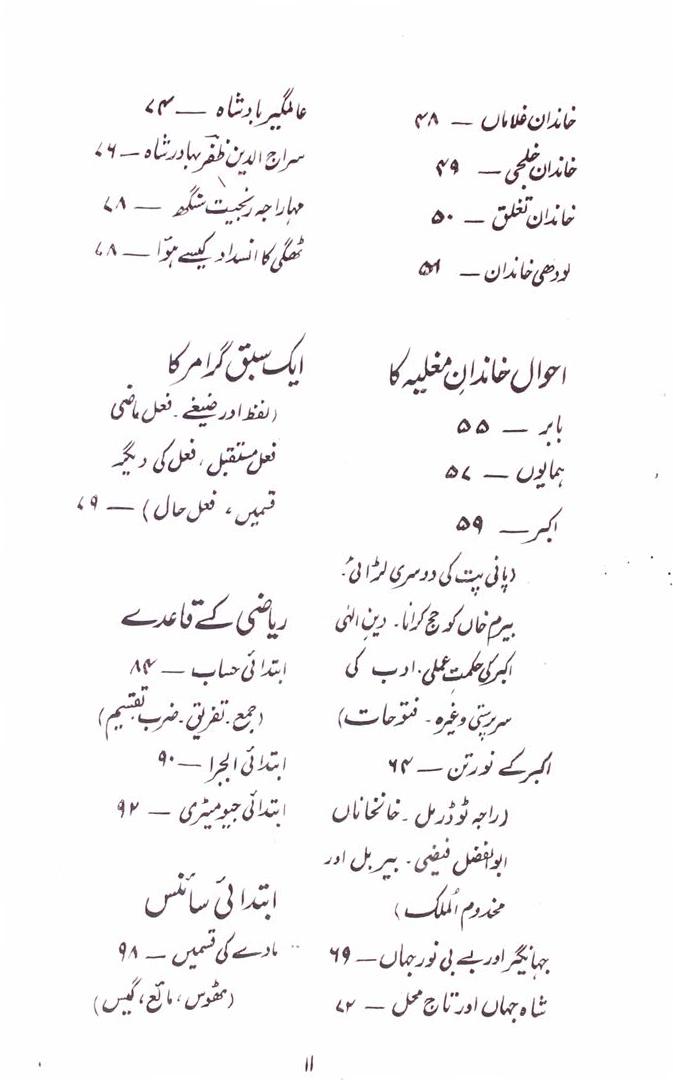 خاندان غلاماں — ۴۸
خاندان خلجی — ۴۹
خاندان تغلق — ۵۰
لودھی خاندان — ۵۱
احوال خاندانِ مغلیہ کا
بابر — ۵۵
ہمایوں — ۵۷
اکبر — ۵۹
(پانی پت کی دوسری لڑائی۔
بیرم خاں کو حج کرانا۔ دینِ الٰہی
اکبر کی حکمتِ عملی۔ ادب کی
سرپرستی وغیرہ۔ فتوحات)
اکبر کے نورتن — ۶۴
(راجہ ٹوڈرمل۔ خانخاناں
ابوالفضل فیضی۔ بیربل اور
مخدوم الملک)
جہانگیر اور بے بی نورجہاں — ۶۹
شاہ جہاں اور تاج محل — ۷۲
عالمگیر بادشاہ — ۷۴
سراج الدین ظفر بہادر شاہ — ۷۶
مہاراجہ رنجیت سنگھ — ۷۸
ٹھگی کا انسداد کیسے ہوا — ۷۸
ایک سبق گرامر کا
(لفظ اور صیغے۔ فعل ماضی
فعل مستقبل، فعل کی دیگر
قسمیں، فعل حال) — ۷۹
ریاضی کے قاعدے
ابتدائی حساب — ۸۴
(جمع۔ تفریق۔ ضرب۔ تقسیم)
ابتدائی الجبرا — ۹۰
ابتدائی جیومیٹری — ۹۲
ابتدائی سائنس
مادے کی قسمیں — ۹۸
(ٹھوس، مائع، گیس)
۱۱